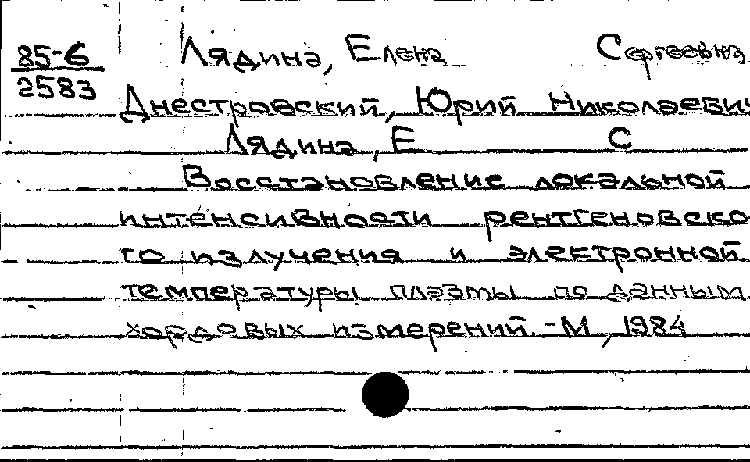 85-6 Лядина, Елена Сергеевна
2583
Днестровский, Юрий Николаевич
Лядина, Е С
Восстановление локальной
интенсивности рентгеновско
го излучения и электронной
температуры плазмы по данным
хордовых измерений. -М, 1984